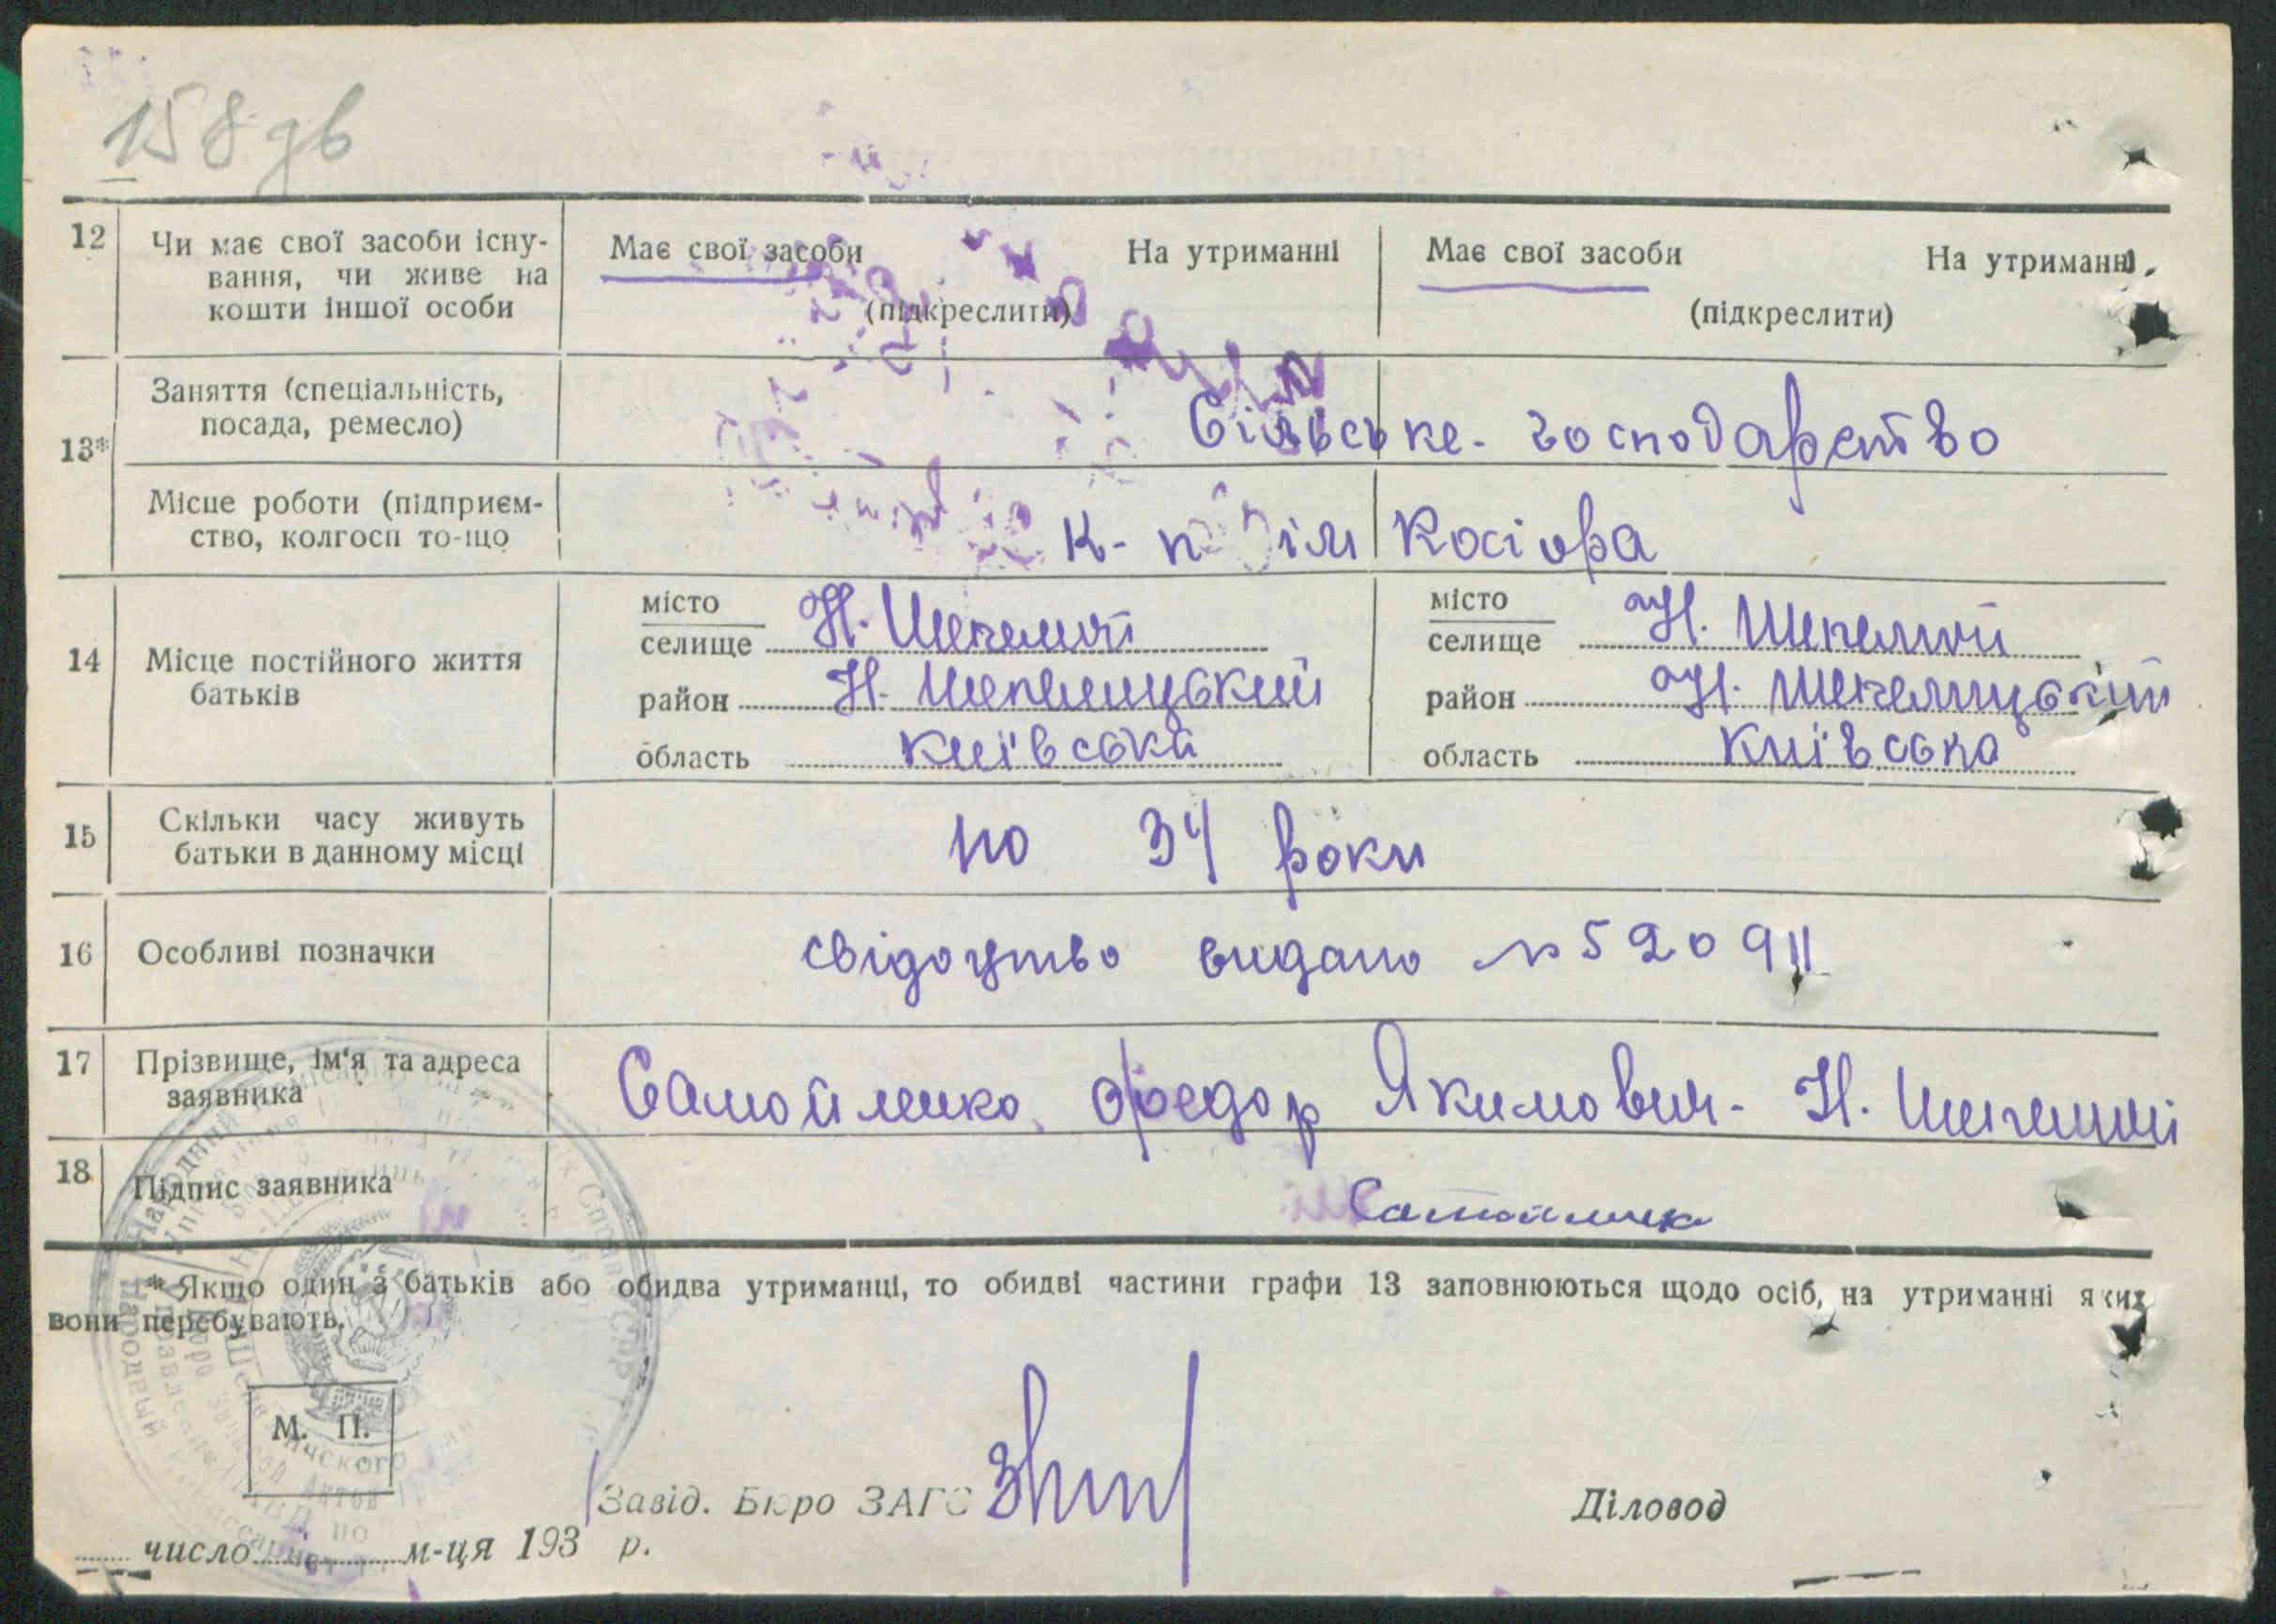 158 зв
12 Чи має свої засоби існу-
вання, чи живе на
кошти іншої особи
Має свої засоби На утриманні
(підкреслити)
Має свої засоби На утриманні
(підкреслити)
13* Заняття (спеціальність,
посада, ремесло)
Сільське-господарство
Місце роботи (підприєм-
ство, колгосп то-що
К- п ім Косіора
14 Місце постійного життя
батьків
місто
селище Н. Шепеличі
район Н. Шепелицький
область Київська
місто
селище Н. Шепеличі
район Н. Шепелицький
область Київська
15 Скільки часу живуть
батьки в данному місці
по 34 роки
16 Особливі позначки
свідоцтво видано №520911
17 Прізвище, ім'я та адреса
заявника
Самойленко Федор Якимович - Н. Шепеличі
18 Підпис заявника
Самойленк
* Якщо один з батьків або обидва утриманці, то обидві частини графи 13 заповнюються щодо осіб, на утриманні яких
вони перебувають.
М. П.
Завід. Бюро ЗАГС
Діловод
число м-ця 193 р.